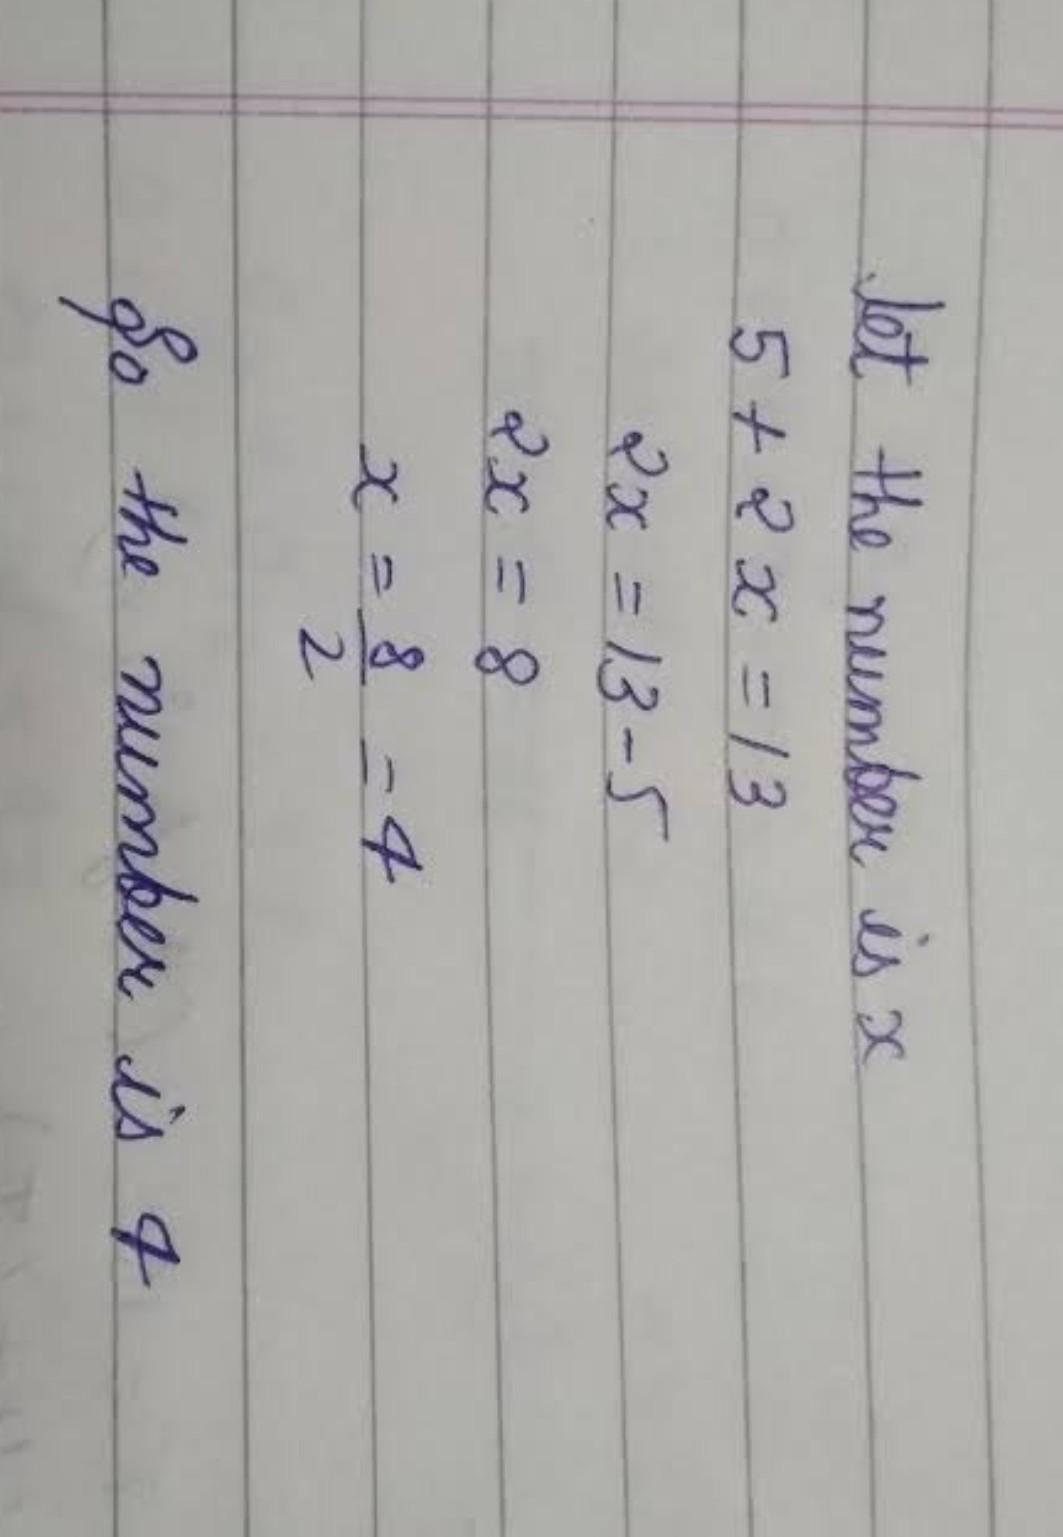 let the number is x
5 + 2x = 13
2x = 13 - 5
2x = 8
x = 8/2 = 4
So the number is 4